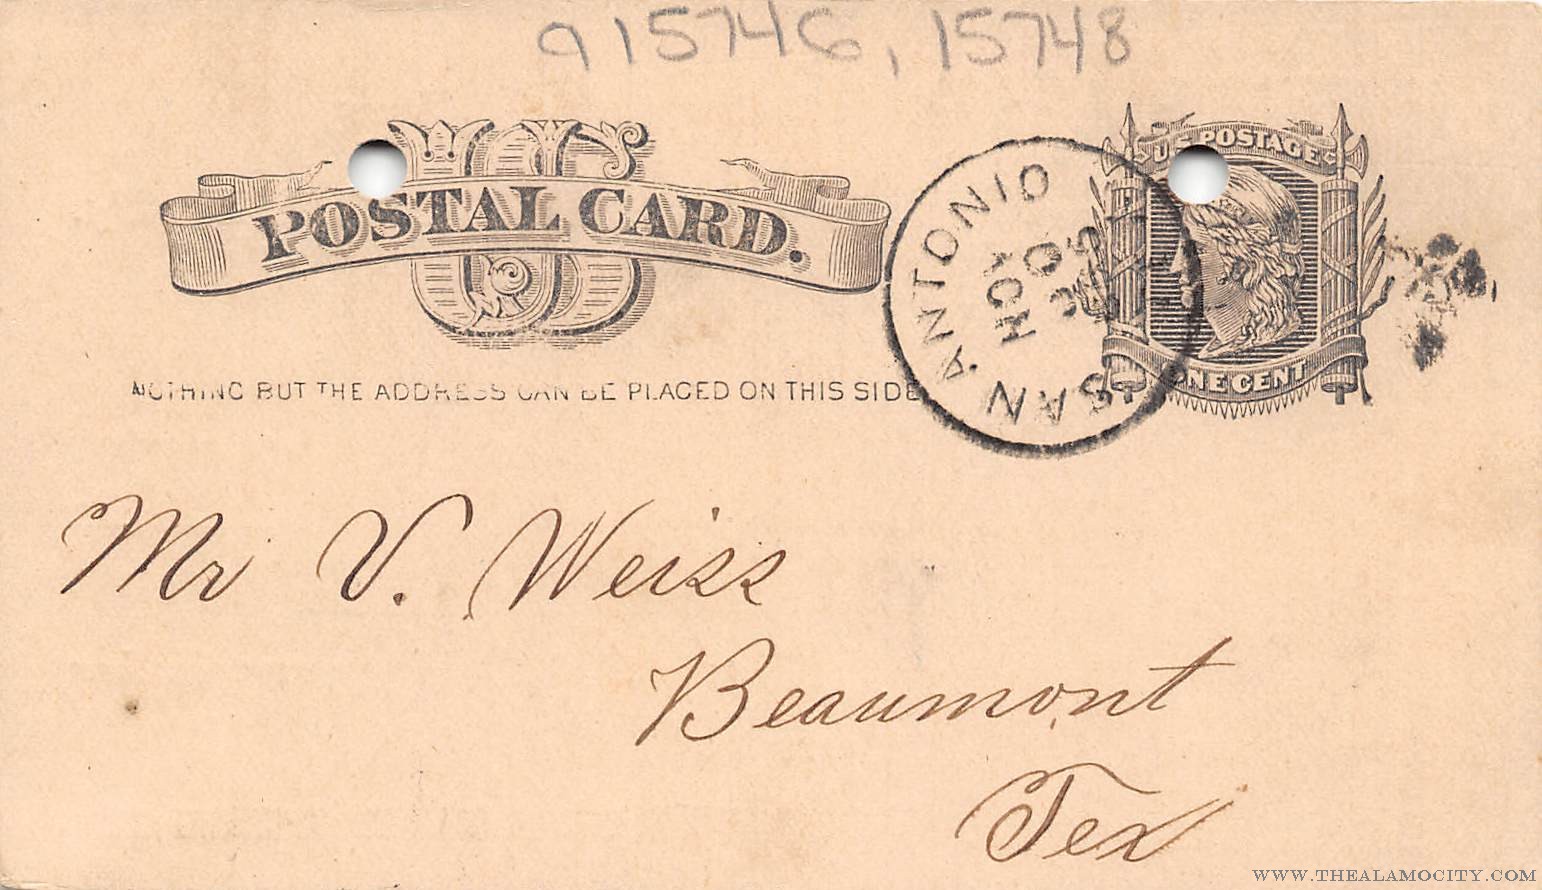 915746, 15748
US
POSTAL CARD.
U.S. POSTAGE
ONE CENT
SAN ANTONIO
NOTHING BUT THE ADDRESS CAN BE PLACED ON THIS SIDE
Mr V. Weiss
Beaumont
Tex
WWW.THEALAMOCITY.COM